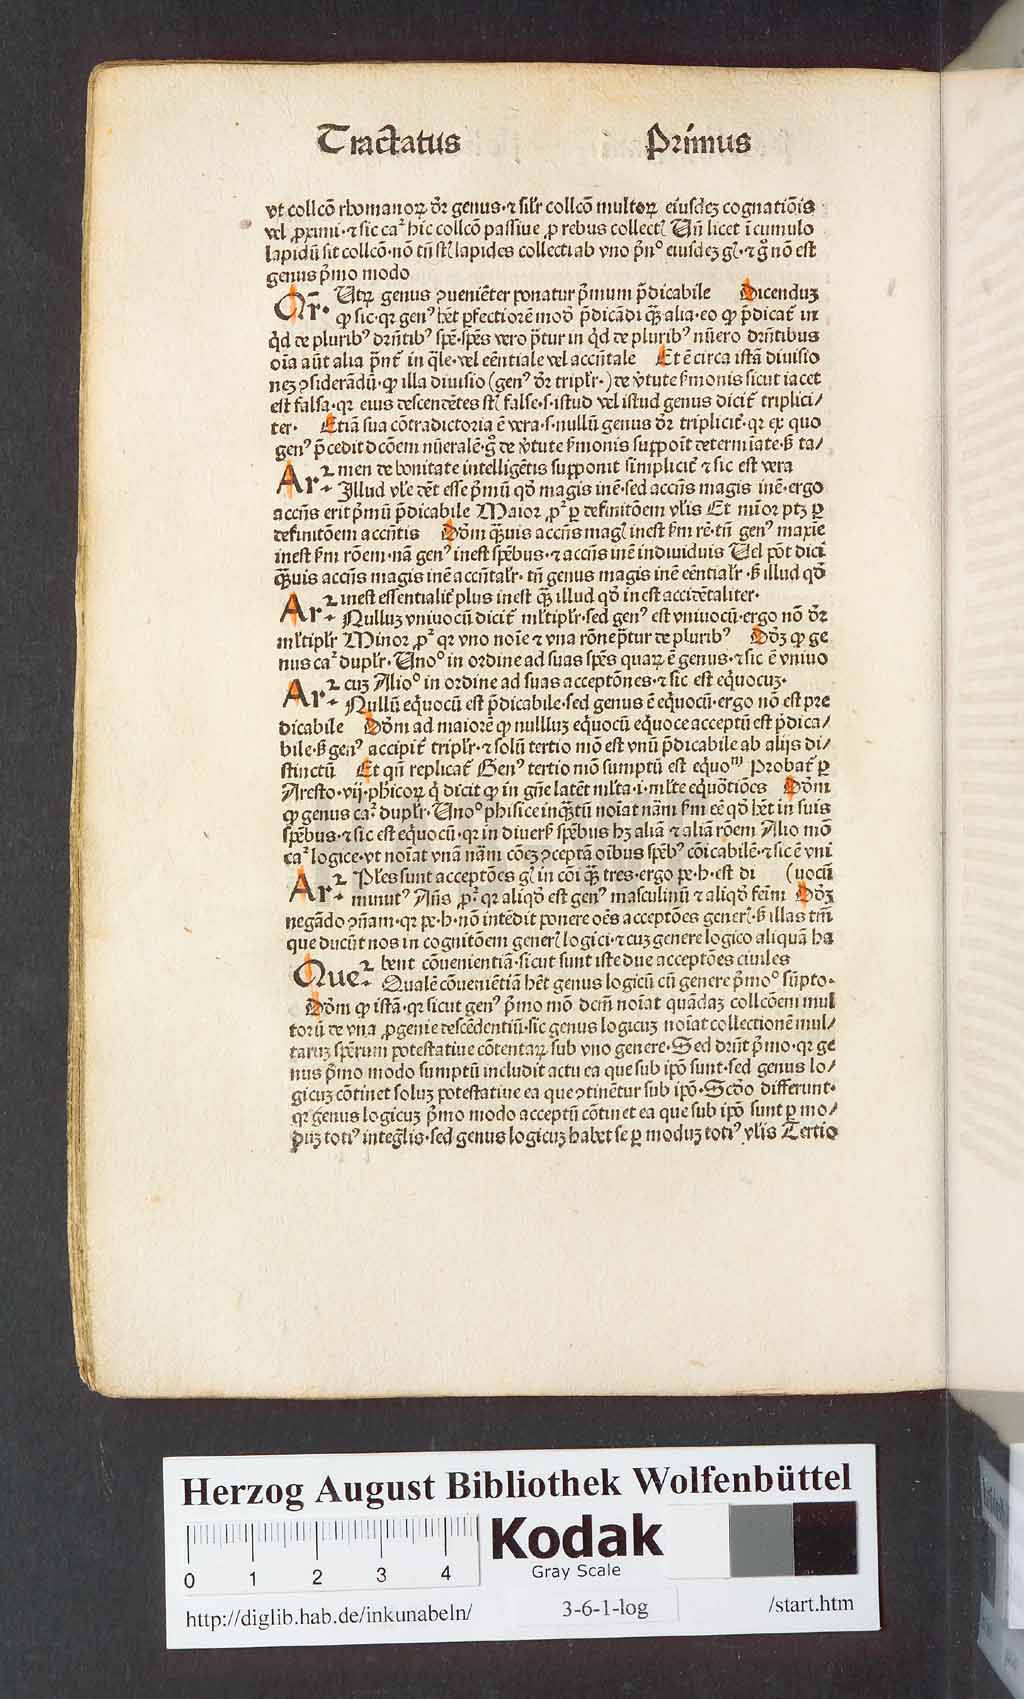 Tractatus Primus
vt collcō rhomanoꝝ dr̄ genus·⁊ silr̄ collcō multoꝝ eiusdeꝫ cognatiōis
vel ꝓximi·⁊ sic caꝰ hic collcō passiue ꝓ rebus collect Un̄ licet ī cumulo
lapidū sit collcō·nō tn̄ st lapides collecti ab vno pͥnº eiusdeꝫ gl·⁊ gͦ nō est
genus pͥmo modo
Qr̄· Utꝝ genus ꝯueniēter ponatur pͥmum p̄dicabile Dicenduꝫ
ꝙ sic·qꝛ genꝰ hēt ꝑfectiorē mod̄ p̄dicādi qꝫ̄ alia·eo ꝙ p̄dicat᷑ in
qͥd de pluribꝰ drn̄tibꝰ spē·spēs vero p̄tur in qͥd de pluribꝰ nūero drn̄tibus
oīa aūt alia p̄nt᷑ in qͣle·vel eēntiale vel accn̄tale Et ē circa istā diuisio
neꝫ ꝯsiderādū·ꝙ illa diuisio (genꝰ dr̄ triplr̄·) de v̓tute s̓monis sicut iacet
est falsa·qꝛ eius descendētes st false·s·istud vel istud genus dicit᷑ triplici/
ter· Etiā sua cōtradictoria ē vera·s·nullū genus dr̄ triplicit᷑·qꝛ ex quo
genꝰ p̄cedit dcōem nūeralē·gͦ de v̓tute s̓monis suppōit determīate·s̓ ta/
Arꝛ· men de bonitate intelligētis supponit simplicit᷑ ⁊ sic est vera
Illud vl̓e dēt esse pͥmū qd̓ magis inē·sed accn̄s magis inē·ergo
accn̄s erit pͥmū p̄dicabile Maior ꝓꝫ ꝑ definitōem vl̓is Et mīor ptꝫ ꝑ
definitōem accn̄tis Dōm qꝫ̄uis accn̄s mag inest s̓m rē·tn̄ genꝰ maxīe
inest s̓m rōem·nā genꝰ inest spēbus·⁊ accn̄s inē indiuiduis Uel pōt dici
qꝫ̄uis accn̄s magis inē accn̄talr̄·tn̄ genus magis inē eēntialr̄·s̓ illud qd̓
Arꝛ· inest essentialit᷑ plus inest qꝫ̄ illud qd̓ in est accidētaliter·
Nulluꝫ vniuocū dicit᷑ ml̓tiplr̄·sed genꝰ est vniuocū·ergo nō dr̄
ml̓tiplr̄ Minor ꝓꝫ qꝛ vno noīe ⁊ vna rōne p̄tur de pluribꝰ Dōꝫ ꝙ ge
nus caꝰ duplr̄·Unoº in ordine ad suas spēs quaꝝ ē genus·⁊ sic ē vniuo
Arꝛ· cuꝫ Alioº in ordine ad suas acceptōnes·⁊ sic est eqͥuocuꝫ·
Nullū eqͥuocū est p̄dicabile·sed genus ē eqͥuocū·ergo nō est pre
dicabile Dōm ad maiorē ꝙ nullluꝫ eqͥuocū eqͥuoce acceptū est p̄dica/
bile·s̓ genꝰ accipit᷑ triplr̄·⁊ solū tertio mō est vnū p̄dicabile ab alijs di/
stinctū Et qn̄ replicat᷑ Genꝰ tertio mō sumptū est equo Probat᷑ ꝑ
Aresto·vij·phicoꝝ qͥ dicit ꝙ in gn̄e latēt ml̓ta·i·ml̓te eqͥuōtiōes Dōm
ꝙ genus caꝰ duplr̄·Unoº phisice inqꝫ̄tū noīat nām s̓m eē qd̓ hēt in suis
spēbus·⁊ sic est eqͥuocū·qꝛ in diuers̓ spēbus hꝫ aliā ⁊ aliā rōem Alio mō
caꝰ logice·vt noīat vnā nām cōeꝫ ꝯceptā oībus spēbꝰ cōicabilē·⁊ sic ē vni
Arꝛ· Pl̓es sunt acceptōes gl in cōi qꝫ̄ tres·ergo pe·h·est di (uocū
minutꝰ An̄s ꝓꝫ qꝛ aliqd̓ est genꝰ masculinū ⁊ aliqd̓ feīm Dōꝫ
negādo ꝯn̄am·qꝛ pe·h·nō intēdit ponere oēs acceptōes gener·s̓ illas tm̄
que ducūt nos in cognitōem gener logici·⁊ cuꝫ genere logico aliquā ha
Queꝛ· bent cōuenientiā·sicut sunt iste due acceptōes ciuiles
Qualē cōueniētiā hēt genus logicū cū genere pͥmoº sūpto·
Dōm ꝙ istā·qꝛ sicut genꝰ pͥmo mō dcm̄ noīat quādaꝫ collcōem mul
torū de vna ꝓgenie descēdentiū·sic genus logicuꝫ noīat collectionē mul/
taruꝫ spērum potestatiue cōtentaꝝ sub vno genere·Sed drūt pͥmo·qꝛ ge
nus pͥmo modo sumptū includit actu ea que sub ip̄o sunt·sed genus lo/
gicuꝫ cōtinet soluꝫ potestatiue ea que ꝯtinētur sub ip̄o·Scd̓o differunt·
qꝛ genus logicuꝫ pͥmo modo acceptū cōtinet ea que sub ip̄o sunt ꝑ mo/
duꝫ totiꝰ integͣlis·sed genus logicuꝫ habet se ꝑ moduꝫ totiꝰ vl̓is Tertio
Herzog August Bibliothek Wolfenbüttel
Kodak
Gray Scale
0 1 2 3 4
http://diglib.hab.de/inkunabeln/ 3-6-1-log /start.htm